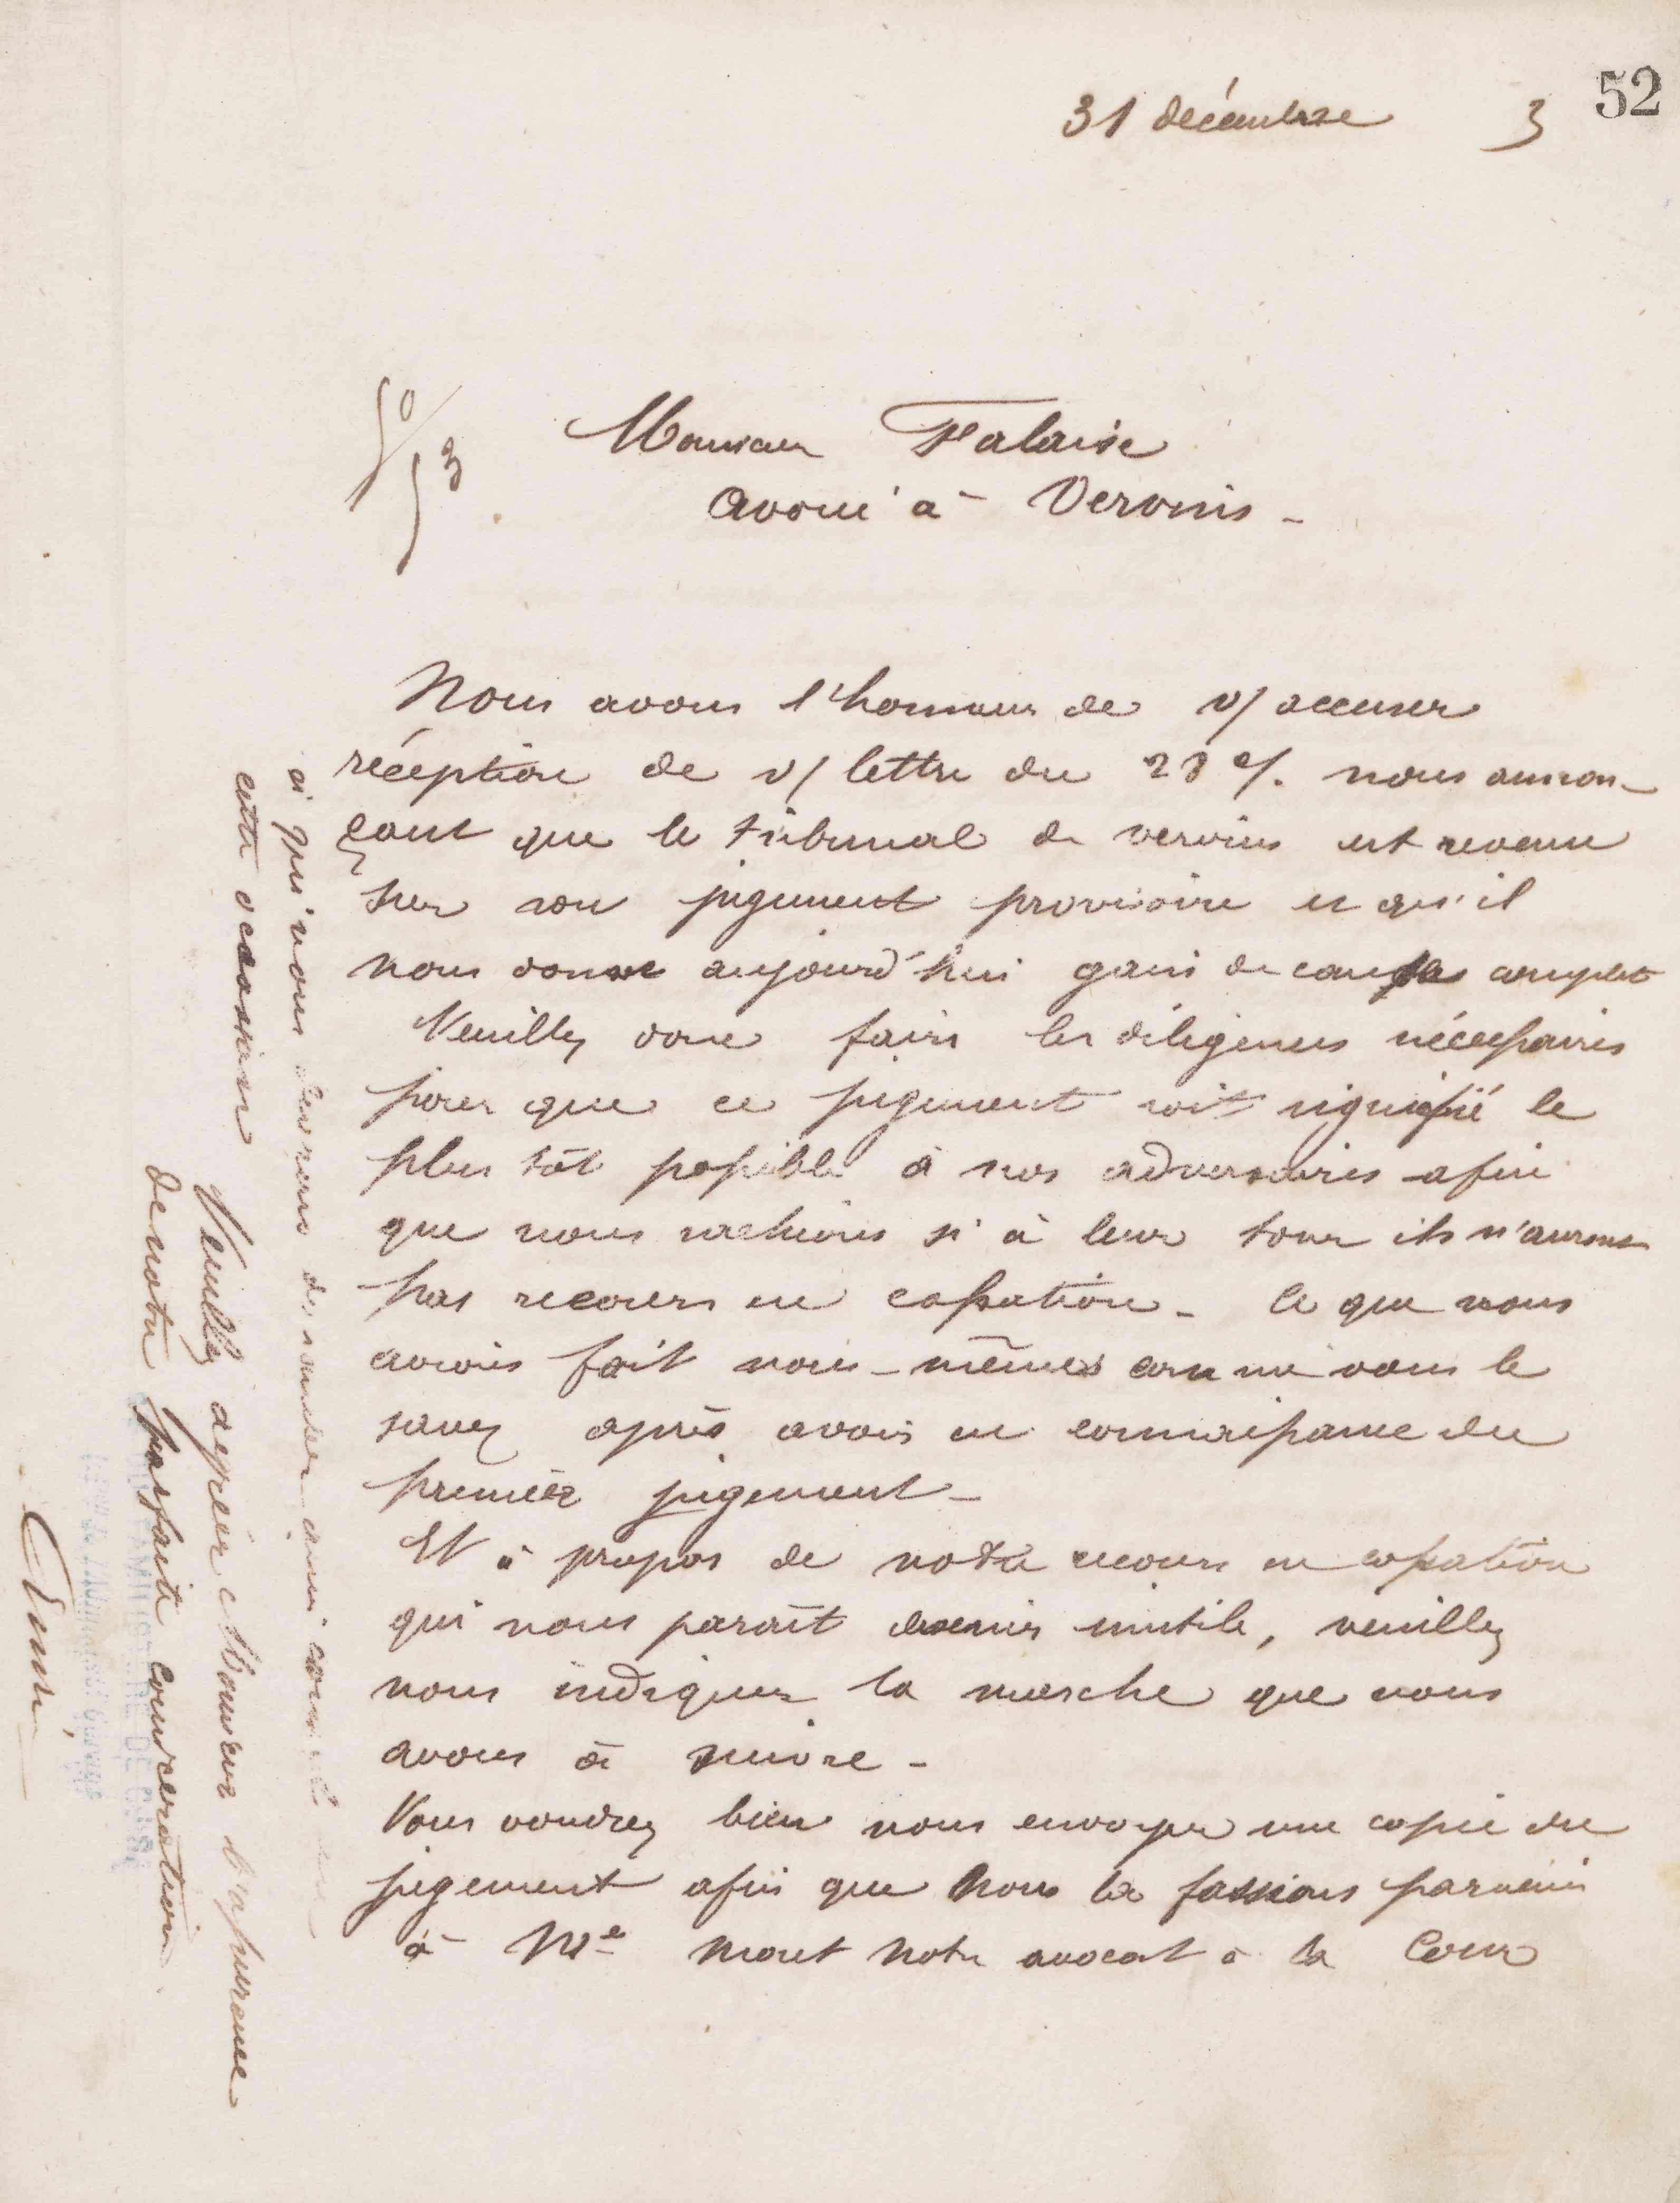 52
31 décembre 3
50/53
Monsieur Falaise
avoué à Vervins -
Nous avons l'honneur de v/ accuser
réception de v/ lettre du 28 c/. nous annon-
çant que le tribunal de vervins est revenu
sur son jugement provisoire et qu'il
nous donne aujourd'hui gain de cause complet
Veuillez donc faire les diligences nécessaires
pour que ce jugement soit signifié le
plus tôt possible à nos adversaires afin
que nous sachions si à leur tour ils n'auront
pas recours en cassation - ce que nous
avions fait nous-mêmes comme vous le
savez après avoir eu connaissance du
premier jugement -
Et à propos de notre recours en cassation
qui nous paraît devenir inutile, veuillez
nous indiquer la marche que nous
avons à suivre -
Vous voudrez bien nous envoyer une copie du
jugement afin que nous la fassions parvenir
à Me notre avocat à la Cour
à qui nous devrons demander aussi
cette occasion
Veuillez agréer Monsieur l'assurance
de notre parfaite considération.